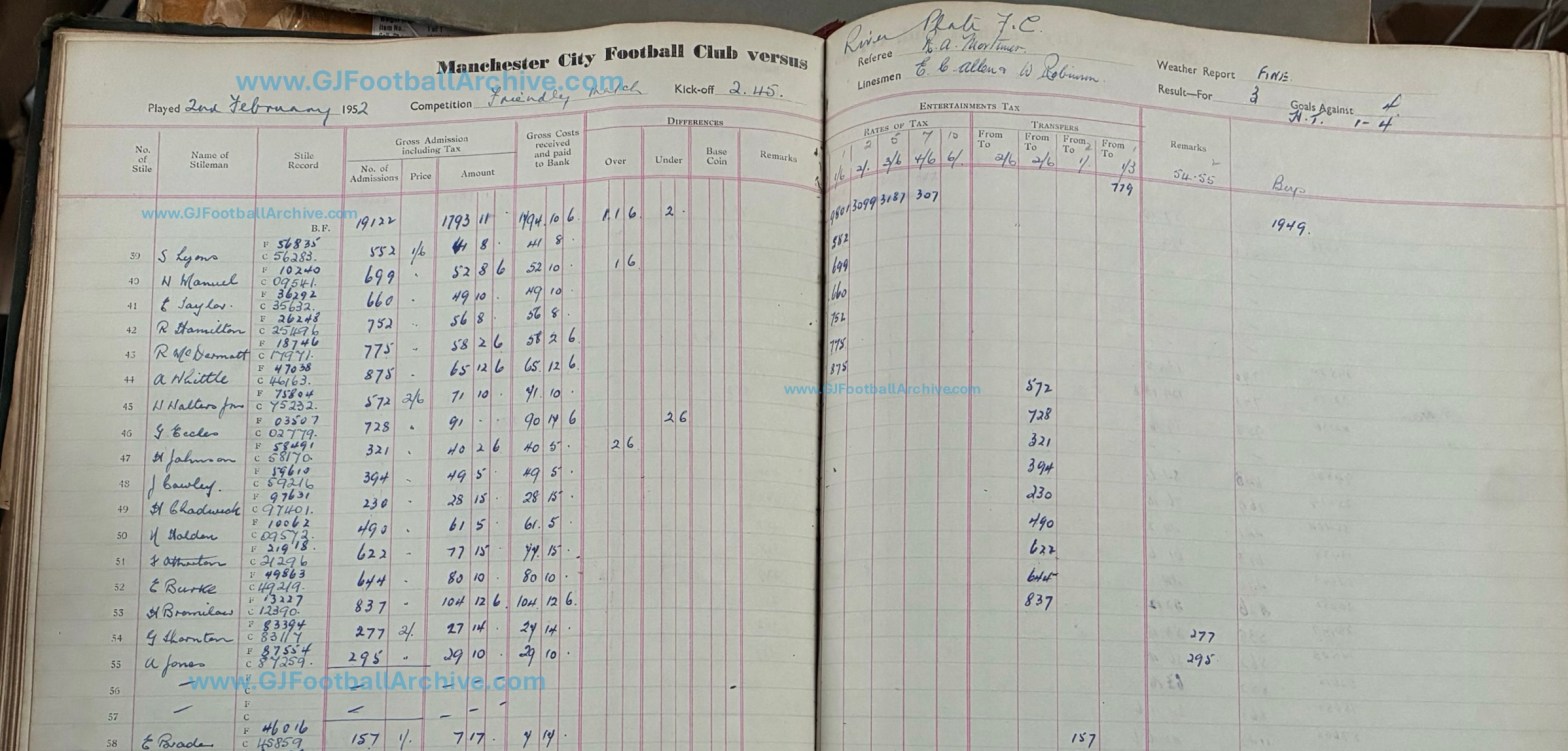 Manchester City Football Club versus River Plate F.C.
www.GJFootballArchive.com
Referee R.A. Mortimer. Weather Report FINE
Linesmen E C Allen & W Robinson. Result—For 3 Goals Against 4
H.T. 1-4
Played 2nd February 1952 Competition Friendly Match Kick-off 2.45.
DIFFERENCES ENTERTAINMENTS TAX
No. of Stile Name of Stileman Stile Record Gross Admission including Tax Gross Costs received and paid to Bank Over Under Base Coin Remarks RATES OF TAX TRANSFERS Remarks
No. of Admissions Price Amount 1 2 5 7 10 From To From To From To From To
1/6 2/. 3/6 4/6 6/. 2/6 2/6 1/. 1/3 54-55 Boys
www.GJFootballArchive.com
B.F. 19122 1793 11 . 1794.10 6 1.1 6 2 . 9801 3099 3187 307 779 1949.
39 S Lyons F 56835 C 56283. 552 1/6 41 8 . 41 8 . 552
40 W Manuel F 10240 C 09541. 699 . 52 8 6 52 10 . 1 6 699
41 E Taylor. F 36292 C 35632. 660 . 49 10 . 49 10 . 660
42 R Hamilton F 26248 C 25496 752 . 56 8 . 56 8 . 752
43 R McDermott F 18746 C 17971. 775 . 58 2 6 58 2 6 775
44 A Whittle F 47038 C 46163. 875 . 65 12 6 65.12 6 875
www.GJFootballArchive.com
45 W Walters Jnr F 75804 C 75232. 572 2/6 71 10 . 71.10 . 572
46 G Eccles F 03507 C 02779. 728 . 91 - . 90 17 6 2 6 728
47 H Johnson F 58491 C 58170. 321 . 40 2 6 40 5 . 2 6 321
48 J Cawley. F 59610 C 59216 394 . 49 5 . 49 5 . 394
49 H Chadwick F 97631 C 97401. 230 . 28 15 . 28 15 . 230
50 H Holden F 10062 C 09572. 490 . 61 5 . 61.5 . 490
51 F F 21918. C 21296 622 . 77 15 . 77.15 . 622
52 E Burke F 49863 C 49219. 644 . 80 10 . 80 10 . 644
53 H Bromilow F 13227 C 12390. 837 . 104 12 6. 104.12 6. 837
54 G Thornton F 83394 C 83117 277 2/. 27 14 . 27 14 . 277
55 A Jones F 87554 C 87259. 295 . 29 10 . 29 10 . 295
www.GJFootballArchive.com
56 — F C
57 — F C
58 E F 46016 C 45859 157 1/. 7 17 . 7 17 . 157